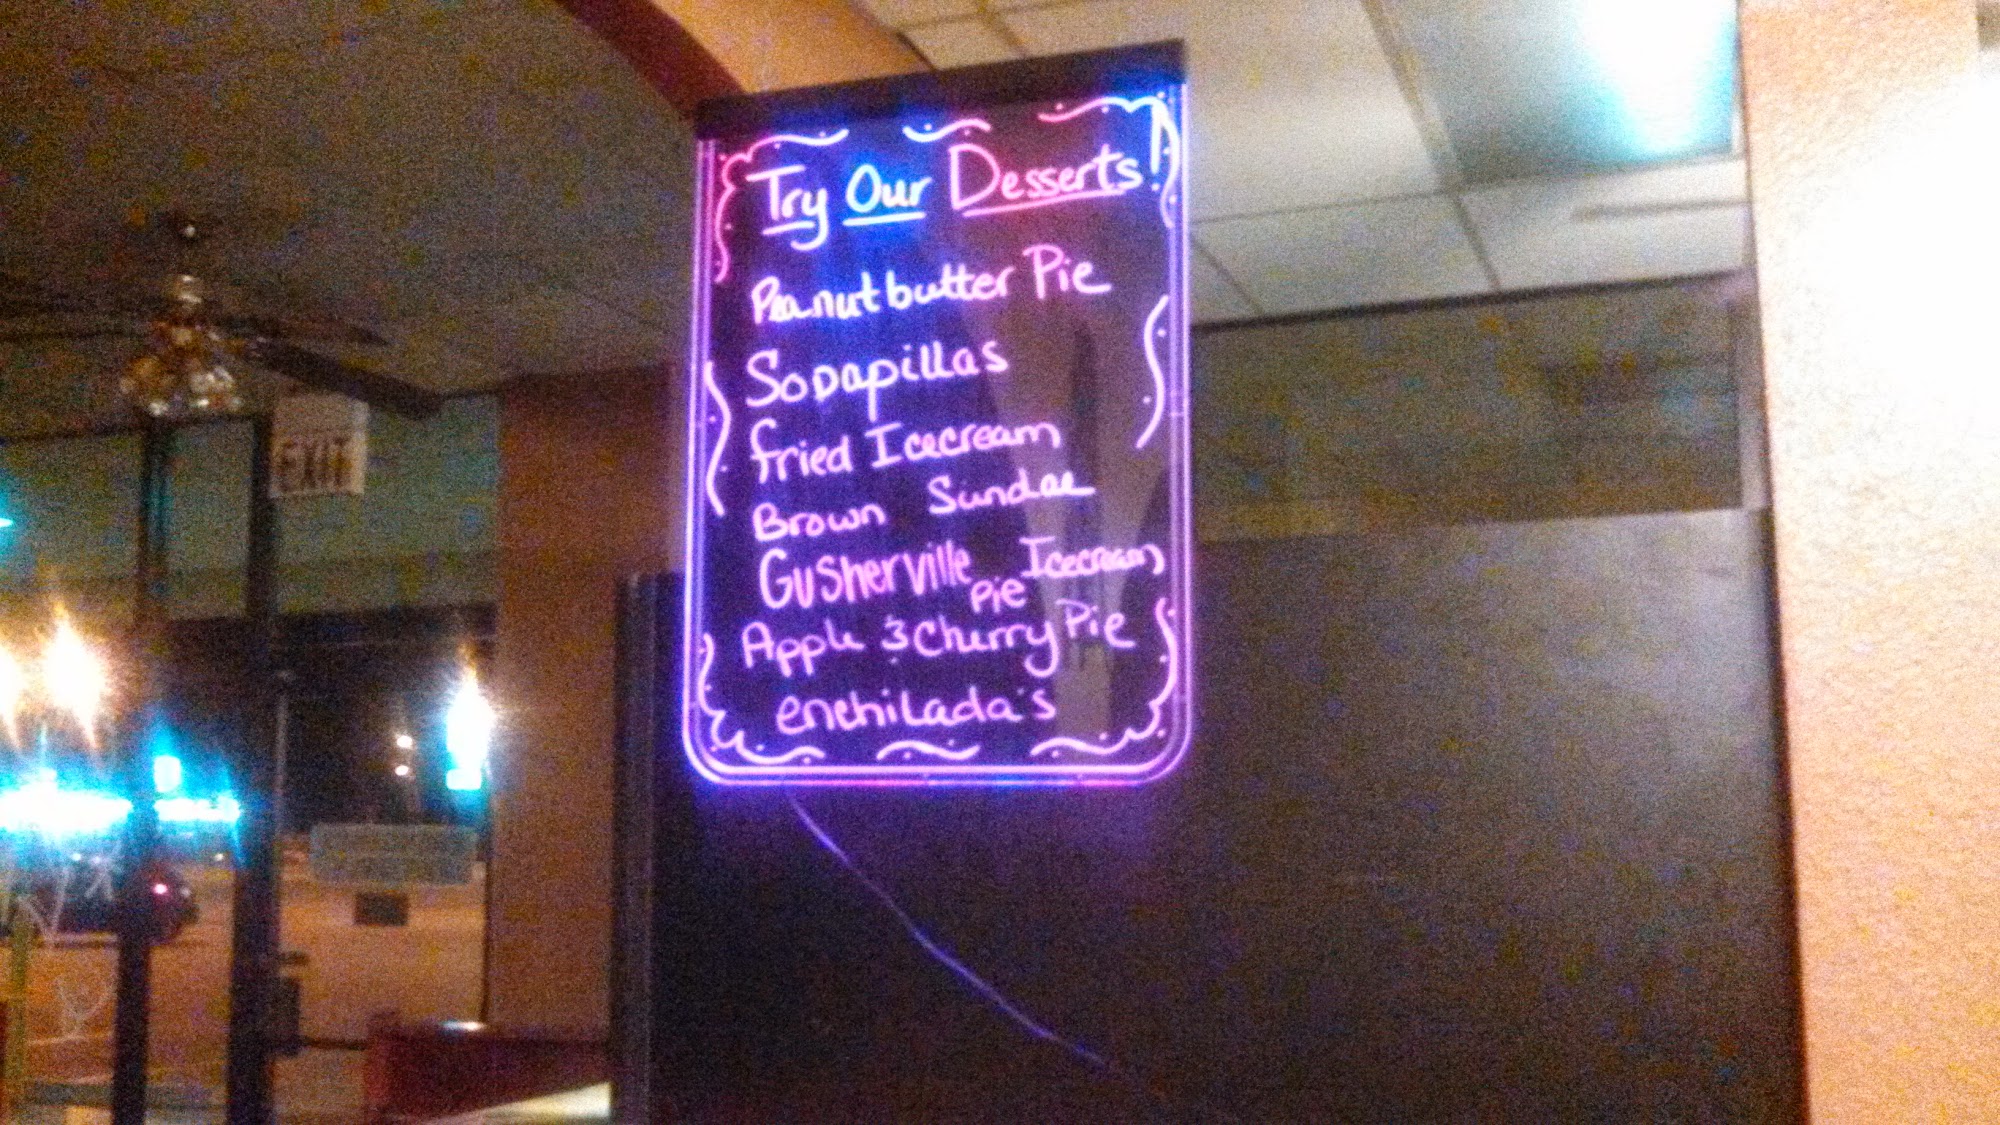 EXIT
Try Our Desserts!
Peanutbutter Pie
Sodapillas
fried Icecream
Brown Sundae
Gusherville Icecream Pie
Apple & Cherry Pie
enchilada's